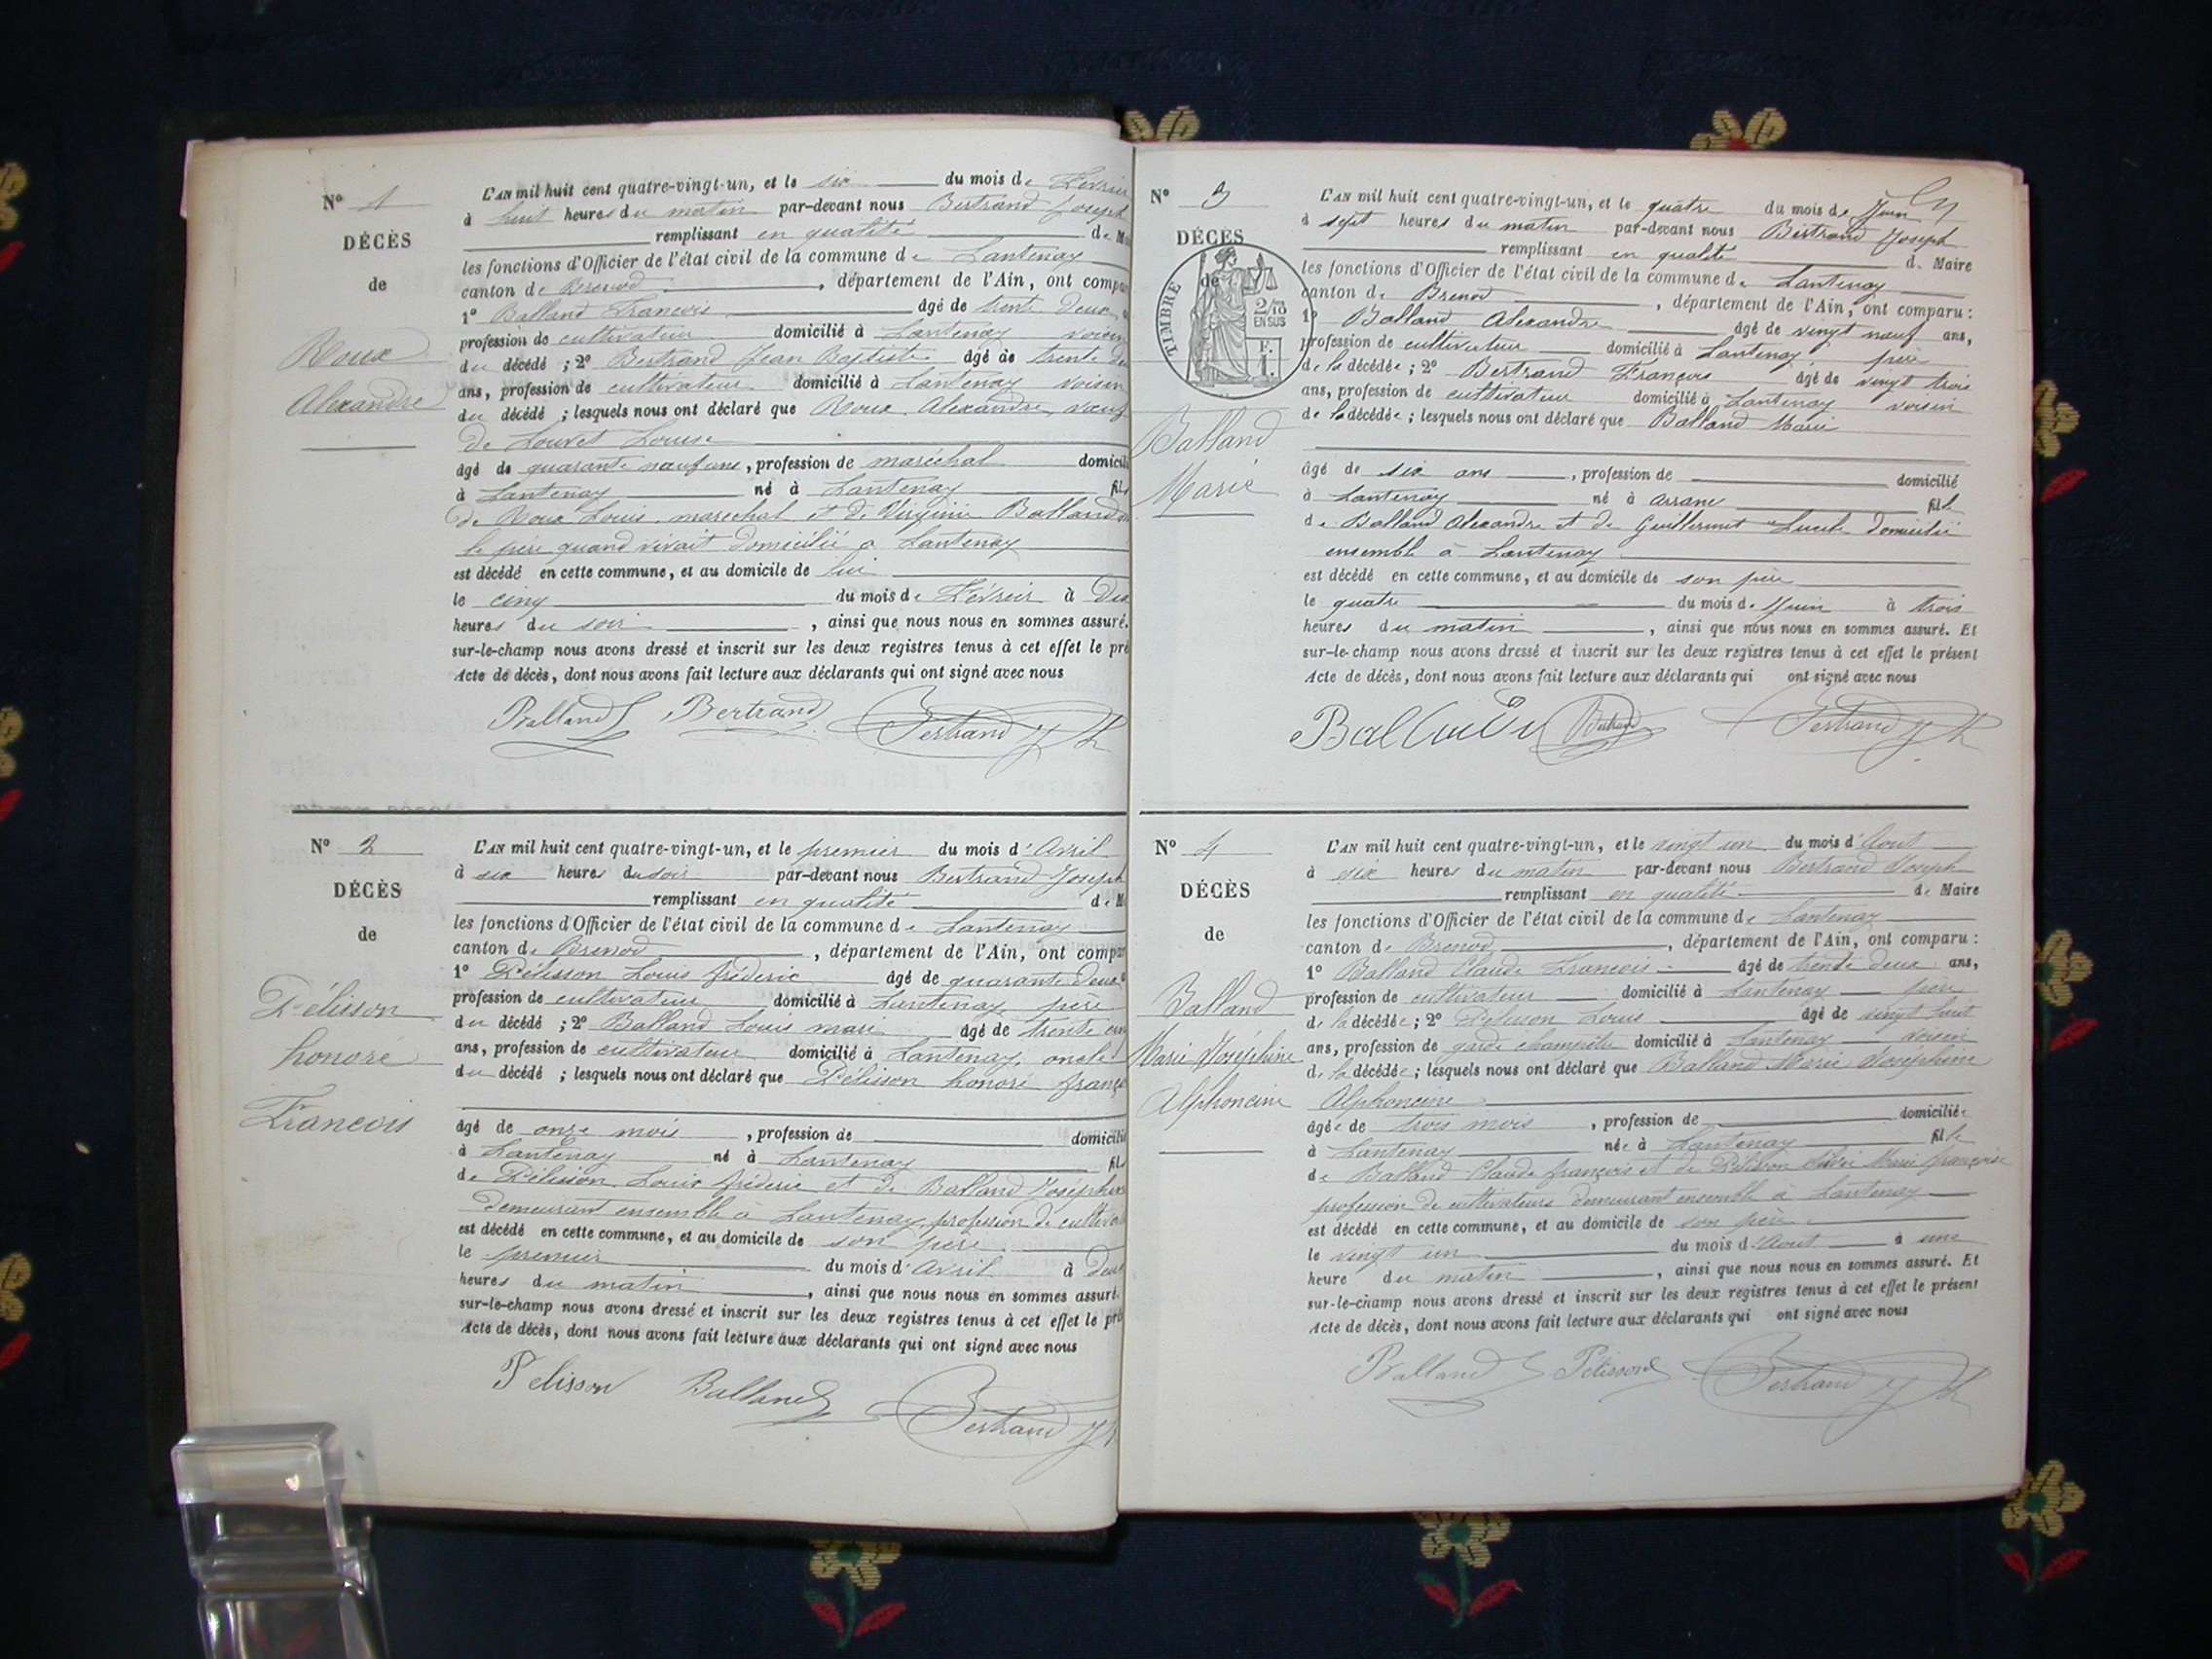 N° 1
DÉCÈS
de
Roux
Alexandre
L'AN mil huit cent quatre-vingt-un, et le six du mois de Février
à huit heures du matin par-devant nous Bertrand Joseph
remplissant en qualité de
les fonctions d'Officier de l'état civil de la commune de Lantenay
canton de Brenod, département de l'Ain, ont
1° Balland Francois âgé de trente deux
profession de cultivateur domicilié à Lantenay voisin
du décédé ; 2° Bertrand Jean Baptiste âgé de trente
ans, profession de cultivateur domicilié à Lantenay voisin
du décédé ; lesquels nous ont déclaré que Roux Alexandre veuf
de Louvet Louise
âgé de quarante neuf ans, profession de maréchal
à Lantenay né à Lantenay fils
de Roux Louis, maréchal et de Virginie Balland
le père quand vivait domicilié a Lantenay
est décédé en cette commune, et au domicile de lui
le cinq du mois de Févreir à
heures du soir, ainsi que nous nous en sommes assuré.
sur-le-champ nous avons dressé et inscrit sur les deux registres tenus à cet effet le
Acte de décès, dont nous avons fait lecture aux déclarants qui ont signé avec nous
Balland Bertrand Bertrand Jh
N° 2
DÉCÈS
de
Pélisson
honoré
Francois
L'AN mil huit cent quatre-vingt-un, et le premier du mois d'Avril
à six heures du soir par-devant nous Bertrand Joseph
remplissant en qualité de
les fonctions d'Officier de l'état civil de la commune de Lantenay
canton de Brenod, département de l'Ain, ont
1° Pélisson Louis fréderic âgé de quarante deux
profession de cultivateur domicilié à Lantenay père
du décédé ; 2° Balland Louis marie âgé de trente
ans, profession de cultivateur domicilié à Lantenay, oncle
du décédé ; lesquels nous ont déclaré que Pélisson honoré
âgé de onze mois, profession de
à Lantenay né à Lantenay fils
de Pélisson Louis fréderic et de Balland
demeurant ensemble a Lantenay, profession de
est décédé en cette commune, et au domicile de son père
le premier du mois d'Avril à
heures du matin, ainsi que nous nous en sommes assuré.
sur-le-champ nous avons dressé et inscrit sur les deux registres tenus à cet effet le
Acte de décès, dont nous avons fait lecture aux déclarants qui ont signé avec nous
Pelisson Balland Bertrand Jh
N° 3
DÉCÈS
de
TIMBRE 2/10 EN SUS F. 1.
Balland
Marie
L'AN mil huit cent quatre-vingt-un, et le quatre du mois de Juin
à sept heures du matin par-devant nous Bertrand Joseph
remplissant en qualité de Maire
les fonctions d'Officier de l'état civil de la commune de Lantenay
canton de Brenod, département de l'Ain, ont comparu :
1° Balland Alexandre âgé de vingt neuf ans,
profession de cultivateur domicilié à Lantenay père
de la décédée ; 2° Bertrand François âgé de vingt trois
ans, profession de cultivateur domicilié à Lantenay voisin
de la décédée ; lesquels nous ont déclaré que Balland Marie
âgé de six ans, profession de domicilié
à Lantenay né à filˡᵉ
de Balland Alexandre et de Guillermet Lucile domicilié
ensemble à Lantenay
est décédé en cette commune, et au domicile de son père
le quatre du mois de Juin à trois
heures du matin, ainsi que nous nous en sommes assuré. Et
sur-le-champ nous avons dressé et inscrit sur les deux registres tenus à cet effet le présent
Acte de décès, dont nous avons fait lecture aux déclarants qui ont signé avec nous
Bertrand Bertrand Jh
N° 4
DÉCÈS
de
Balland
Marie Joséphine
Alphoncine
L'AN mil huit cent quatre-vingt-un, et le vingt un du mois d'Aout
à heures du matin par-devant nous Bertrand Joseph
remplissant en qualité de Maire
les fonctions d'Officier de l'état civil de la commune de Lantenay
canton de Brenod, département de l'Ain, ont comparu :
1° Balland Claude Francois âgé de trente deux ans,
profession de cultivateur domicilié à Lantenay père
de la décédée ; 2° Pélisson Louis âgé de vingt huit
ans, profession de garde champêtre domicilié à Lantenay voisin
de la décédée ; lesquels nous ont déclaré que Balland Marie Joséphine
Alphoncine
âgée de trois mois, profession de domiciliée
à Lantenay née à Lantenay fille
de Balland Claude françois et de Pélisson Marie françoise
profession de cultivateurs demeurant ensemble à Lantenay
est décédé en cette commune, et au domicile de son père
le vingt un du mois d'Aout à une
heure du matin, ainsi que nous nous en sommes assuré. Et
sur-le-champ nous avons dressé et inscrit sur les deux registres tenus à cet effet le présent
Acte de décès, dont nous avons fait lecture aux déclarants qui ont signé avec nous
Balland Pélisson Bertrand Jh